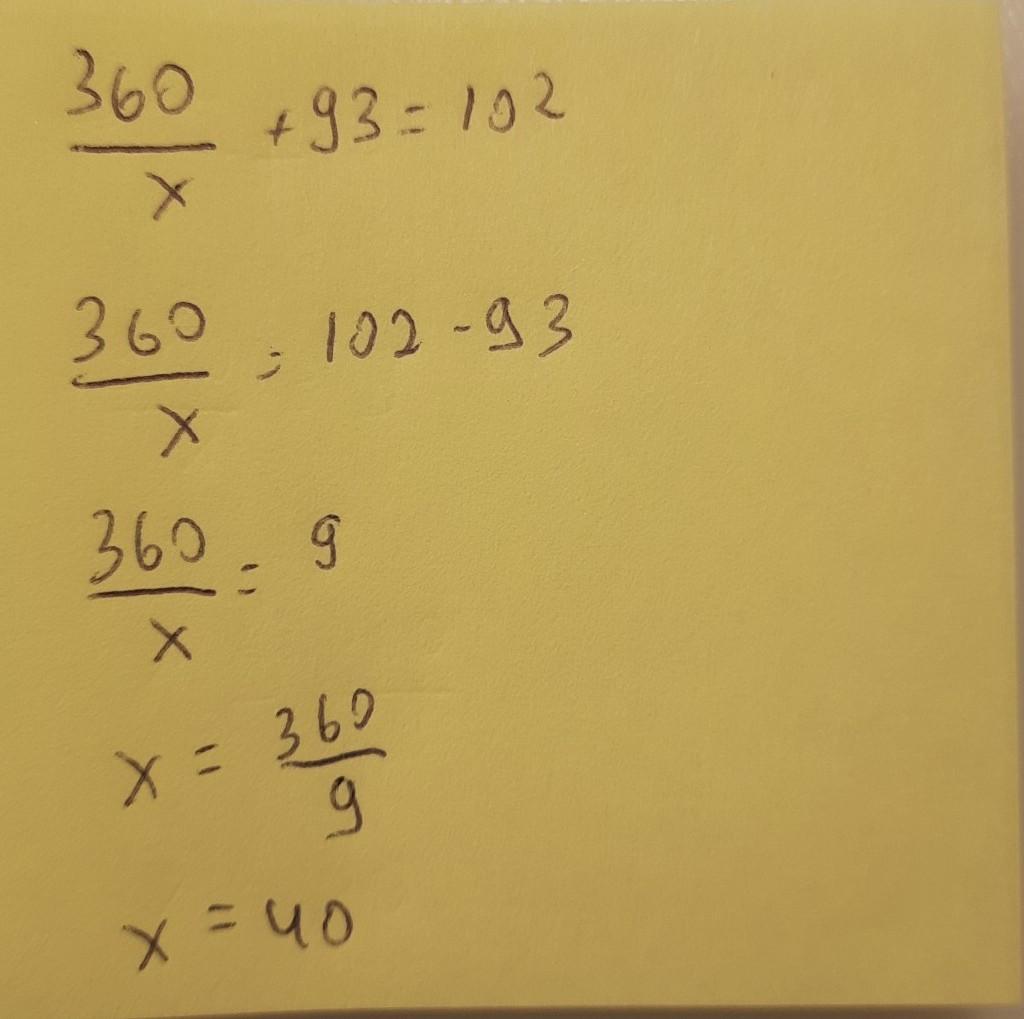 360/x + 93 = 102
360/x = 102 - 93
360/x = 9
x = 360/9
x = 40